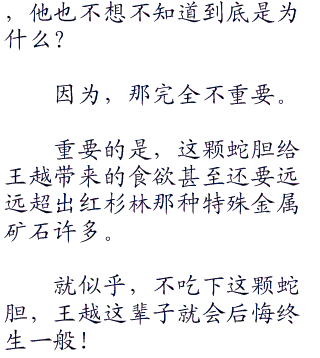 ，他也不想不知道到底是为
什么？
因为，那完全不重要。
重要的是，这颗蛇胆给
王越带来的食欲甚至还要远
远超出红杉林那种特殊金属
矿石许多。
就似乎，不吃下这颗蛇
胆，王越这辈子就会后悔终
生一般！